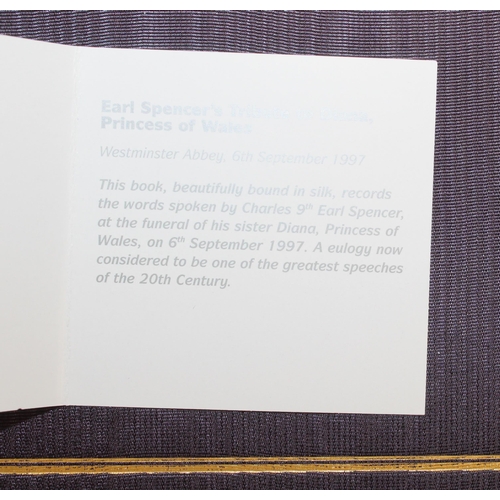 Earl Spencer's Tribute to Diana,
Princess of Wales
Westminster Abbey, 6th September 1997
This book, beautifully bound in silk, records
the words spoken by Charles 9th Earl Spencer,
at the funeral of his sister Diana, Princess of
Wales, on 6th September 1997. A eulogy now
considered to be one of the greatest speeches
of the 20th Century.